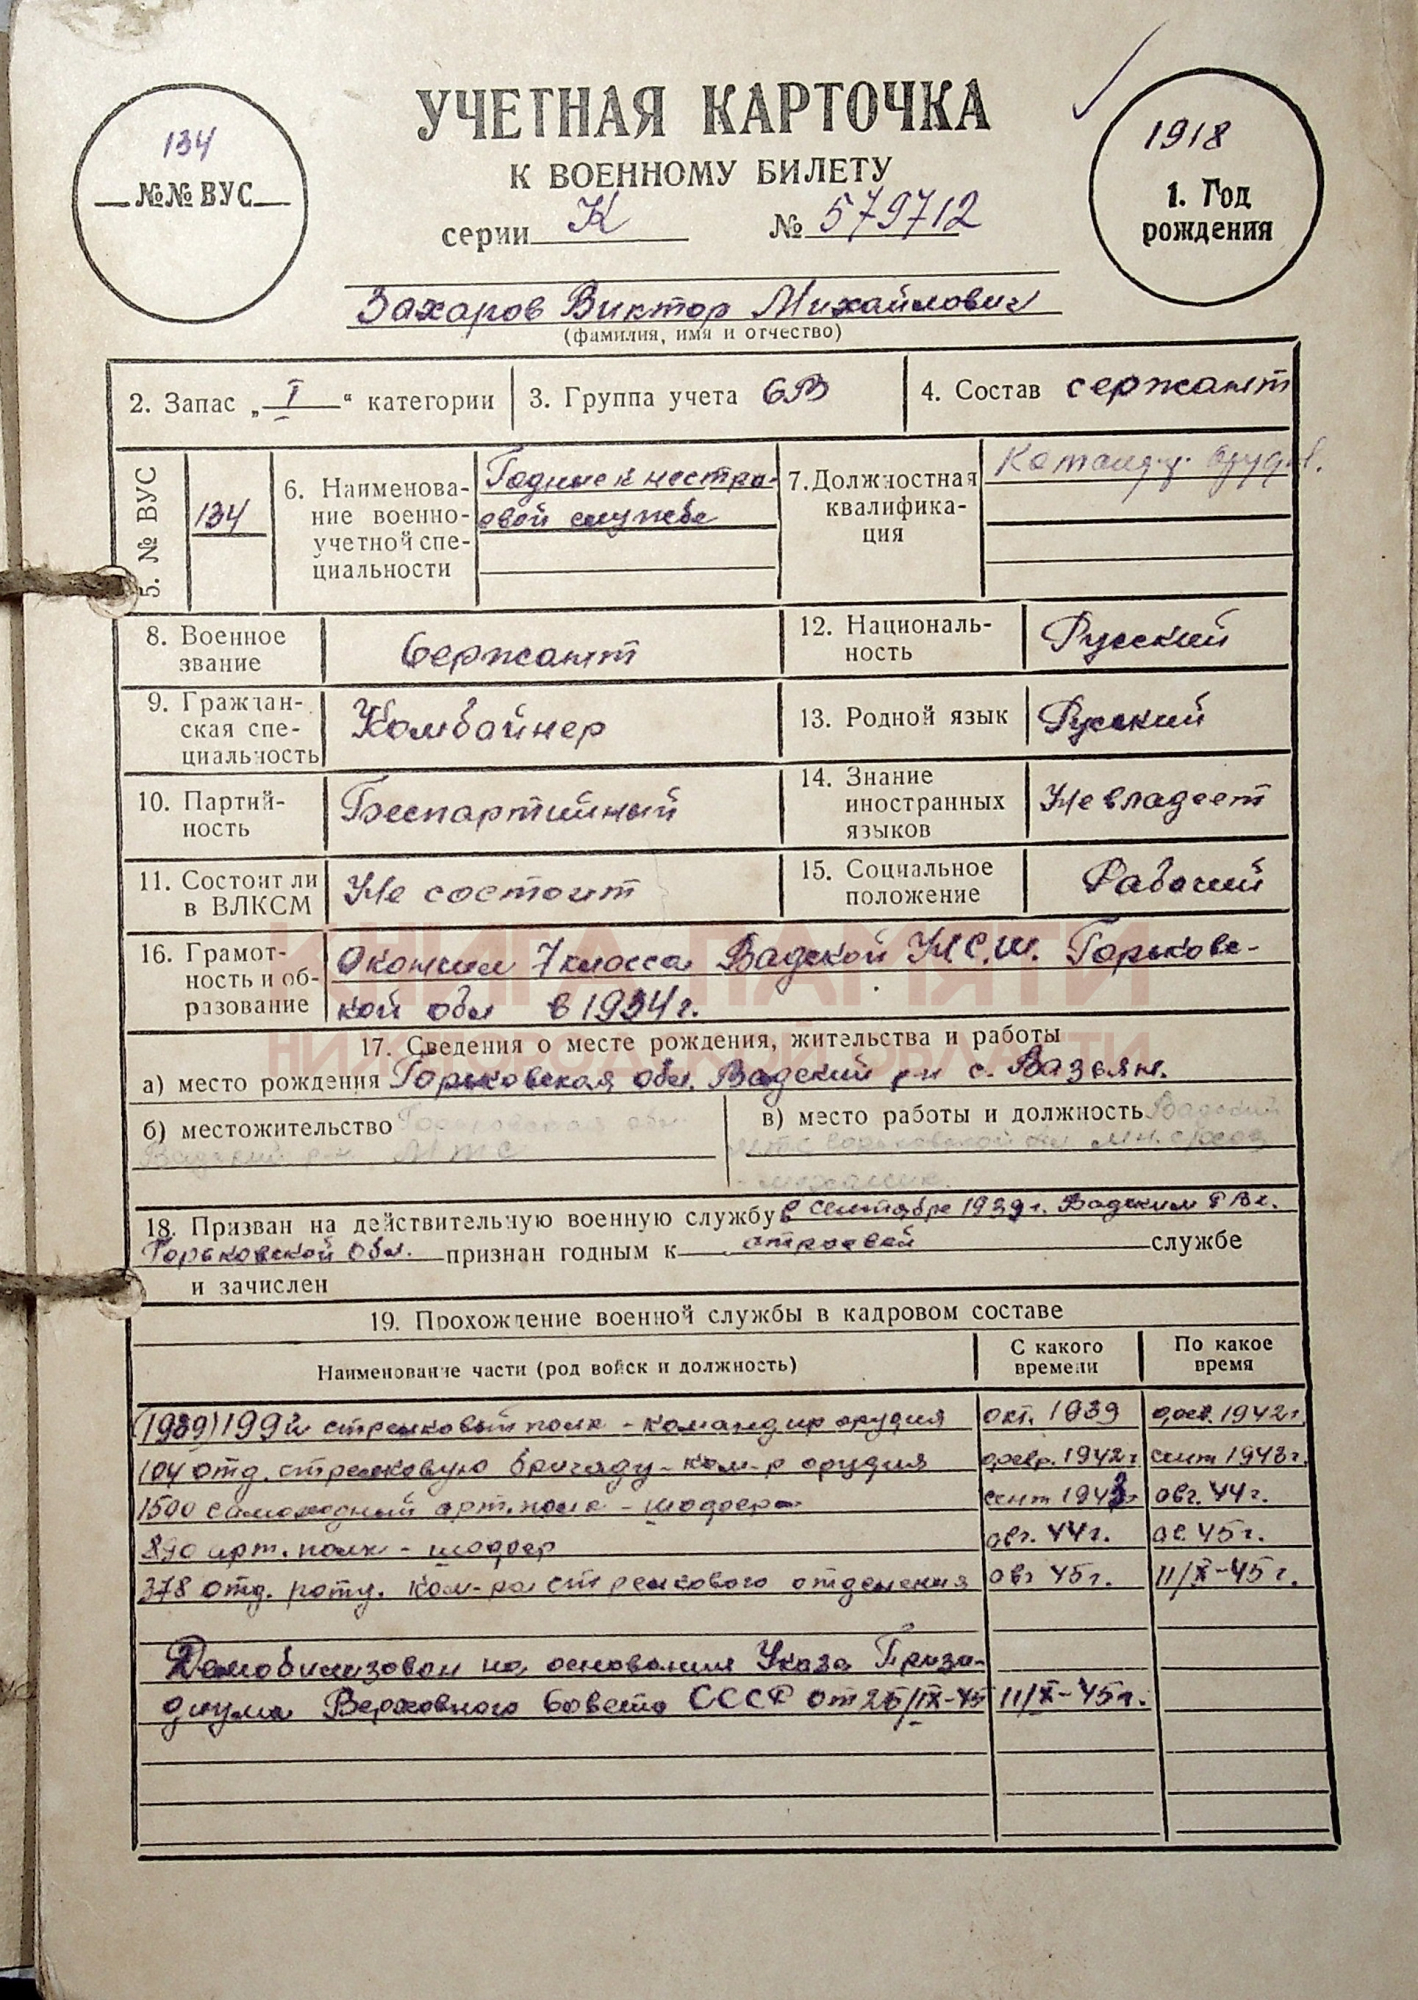 УЧЕТНАЯ КАРТОЧКА
К ВОЕННОМУ БИЛЕТУ
серии К № 579712
134
№№ ВУС
1918
1. Год
рождения
Захаров Виктор Михайлович
(фамилия, имя и отчество)
2. Запас „ I “ категории
3. Группа учета 6В
4. Состав сержант
5. № ВУС
134
6. Наименова-
ние военно-
учетной спе-
циальности
Годные к нестро-
евой службе
7. Должностная
квалифика-
ция
Команд.р. оруд.
8. Военное
звание
Сержант
12. Националь-
ность
Русский
9. Граждан-
ская спе-
циальность
Комбайнер
13. Родной язык
Русский
10. Партий-
ность
Беспартийный
14. Знание
иностранных
языков
Не владеет
11. Состоит ли
в ВЛКСМ
Не состоит
15. Социальное
положение
Рабочий
16. Грамот-
ность и об-
разование
Окончил 7 класса Вадской Н.С.Ш. Горьковс-
кой обл в 1934 г.
КНИГА ПАМЯТИ
НИЖЕГОРОДСКОЙ ОБЛАСТИ
17. Сведения о месте рождения, жительства и работы
а) место рождения Горьковская обл. Вадский р-н с. Вазьян.
б) местожительство Горьковская обл.
Вадский р-н. МТС
в) место работы и должность Вадский
МТС Горьковской обл
механик.
18. Призван на действительную военную службу в сентябре 1939 г. Вадским РВк.
Горьковской Обл. признан годным к строевой службе
и зачислен
19. Прохождение военной службы в кадровом составе
Наименование части (род войск и должность)
С какого
времени
По какое
время
(1939) 199й стрелковый полк - командир орудия окт. 1939 фев. 1942 г.
104 отд. стрелковую бригаду - ком-р орудия февр. 1942 г сент 1943 г.
1500 самоходный арт.полк - шофера сент 1943 г авг. 44 г.
890 арт. полк - шофер авг. 44 г. ав. 45 г.
378 отд. роту. ком-ра стрелкового отделения авг 45 г. 11/X-45 г.
Демобилизован на основании Указа Прези-
диума Верховного Совета СССР от 25/IX-45 11/X-45 г.